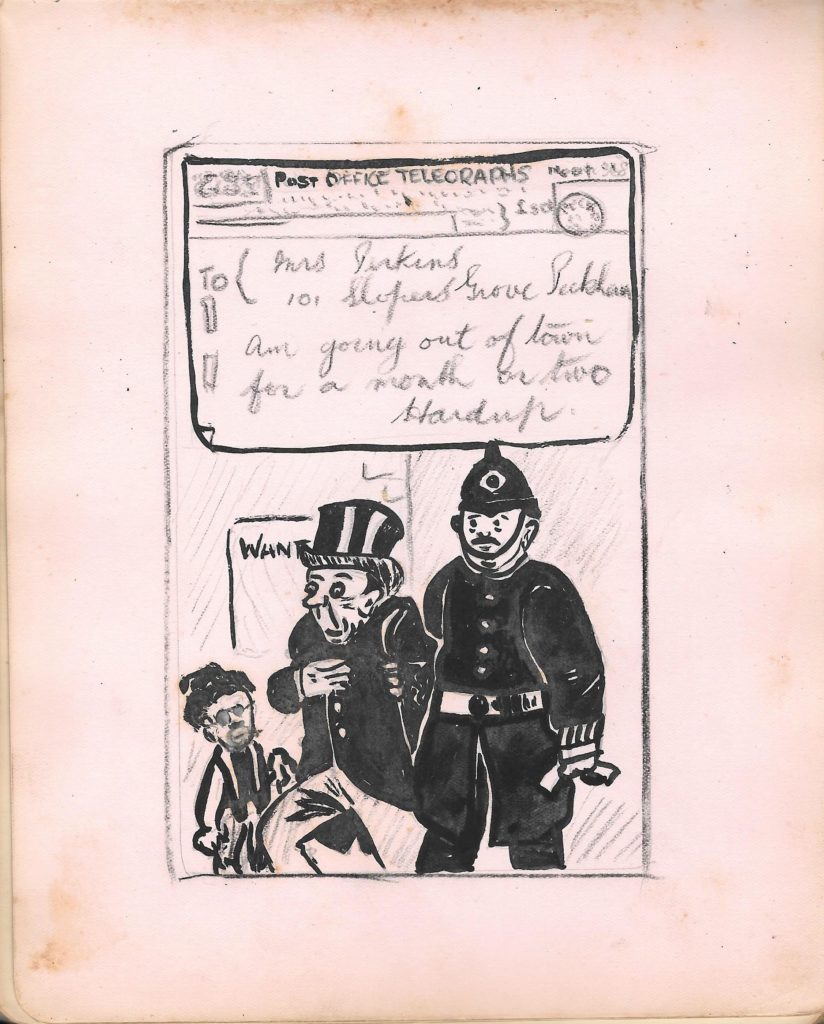 POST OFFICE TELEGRAPHS
TO
Mrs Perkins
101 Slopers Grove Peckham
am going out of town
for a month or two
Hardup.
WANT